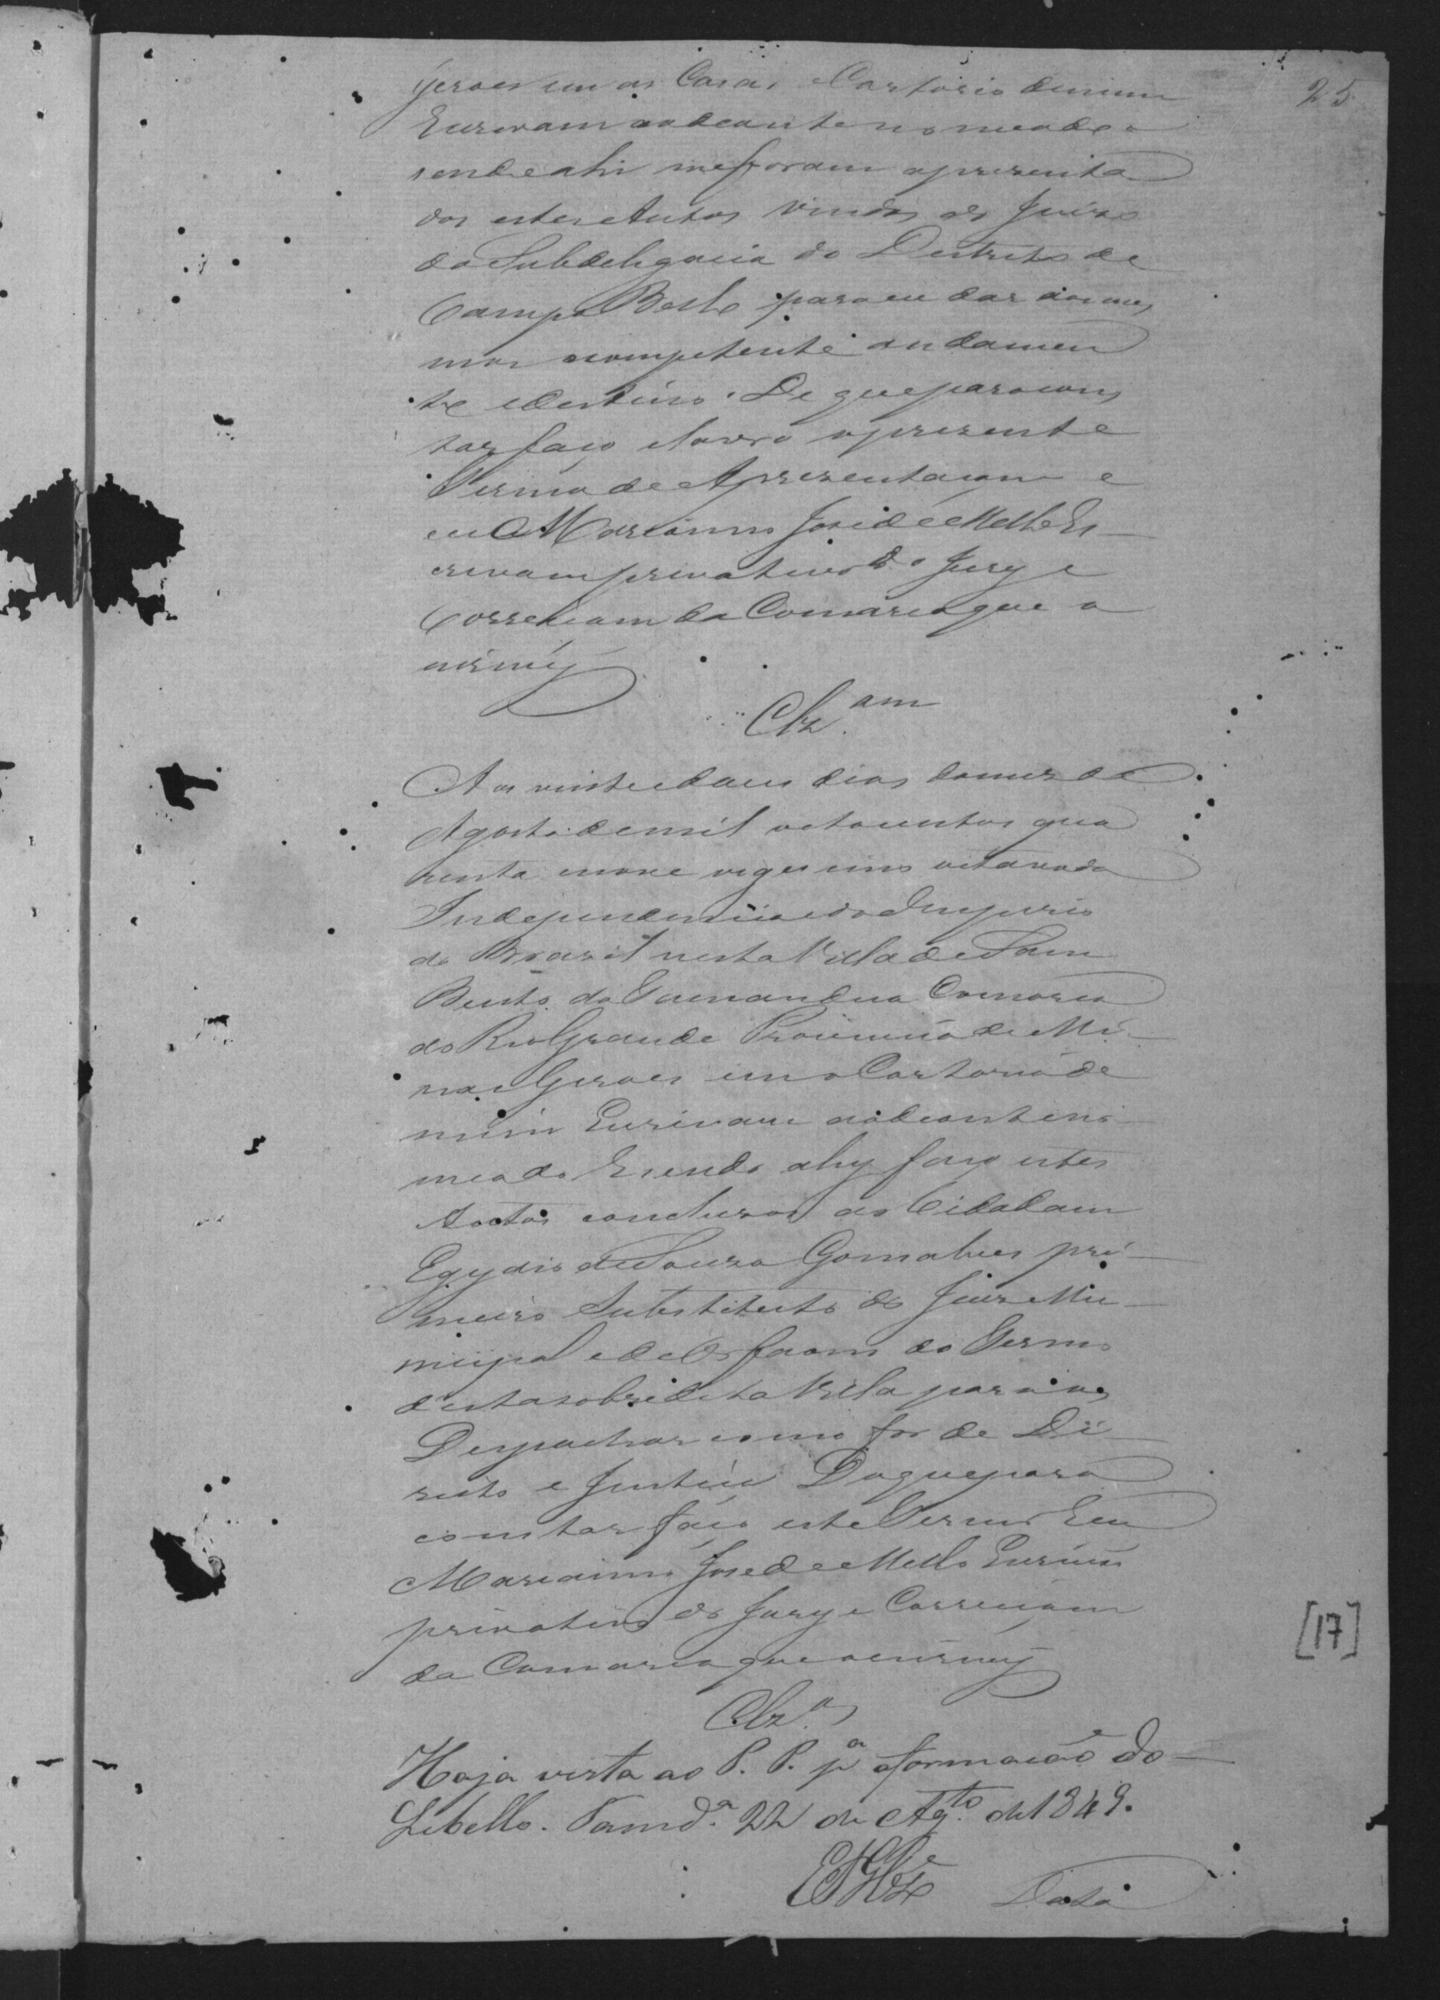 25
Geraes em as Casas e Cartorio de mim
Escrivam aodeante nomeado e
sendo ahi me foram apresenta
dos estes Autos vindos do Juizo
da Subdelegacia do Destricto de
Campo Bello para eu dar aos mes
mos o competente andamen
to e destino. De que para cons
tar faço e lavro o presente
Termo de Apresentaçam e
eu Marianno José de Mello Es
crivam privativo do Jury e
Correiçam da Comarca que o
escrevy
Clz.am
Aos vinte e dous dias do mez de
Agosto de mil oitocentos qua
renta e nove vigessimo oitavo da
Independencia e do Imperio
do Brazil nesta Villa de Sam
Bento do Tamandua Comarca
do Rio Grande Provincia de Mi
nas Geraes em o Cartorio de
mim Escrivam aodeante no
meado e sendo ahy faço estes
Autos concluzos ao Cidadam
Egydio de Souza Gonsalves pri
meiro Substituto do Juiz Mu
nicipal e de Orfaons do Termo
desta sobredita Villa para os
Despachar como for de Di
reito e Justiça Do que para
constar faço este Termo Eu
Marianno José de Mello Escrivam
privativo do Jury e Correiçam
da Comarca que o escrevy
[17]
Clz.os
Haja vista ao P. P. pª a formação do
Libello. Tamd.ª 22 de Ag.to de 1849.
Data